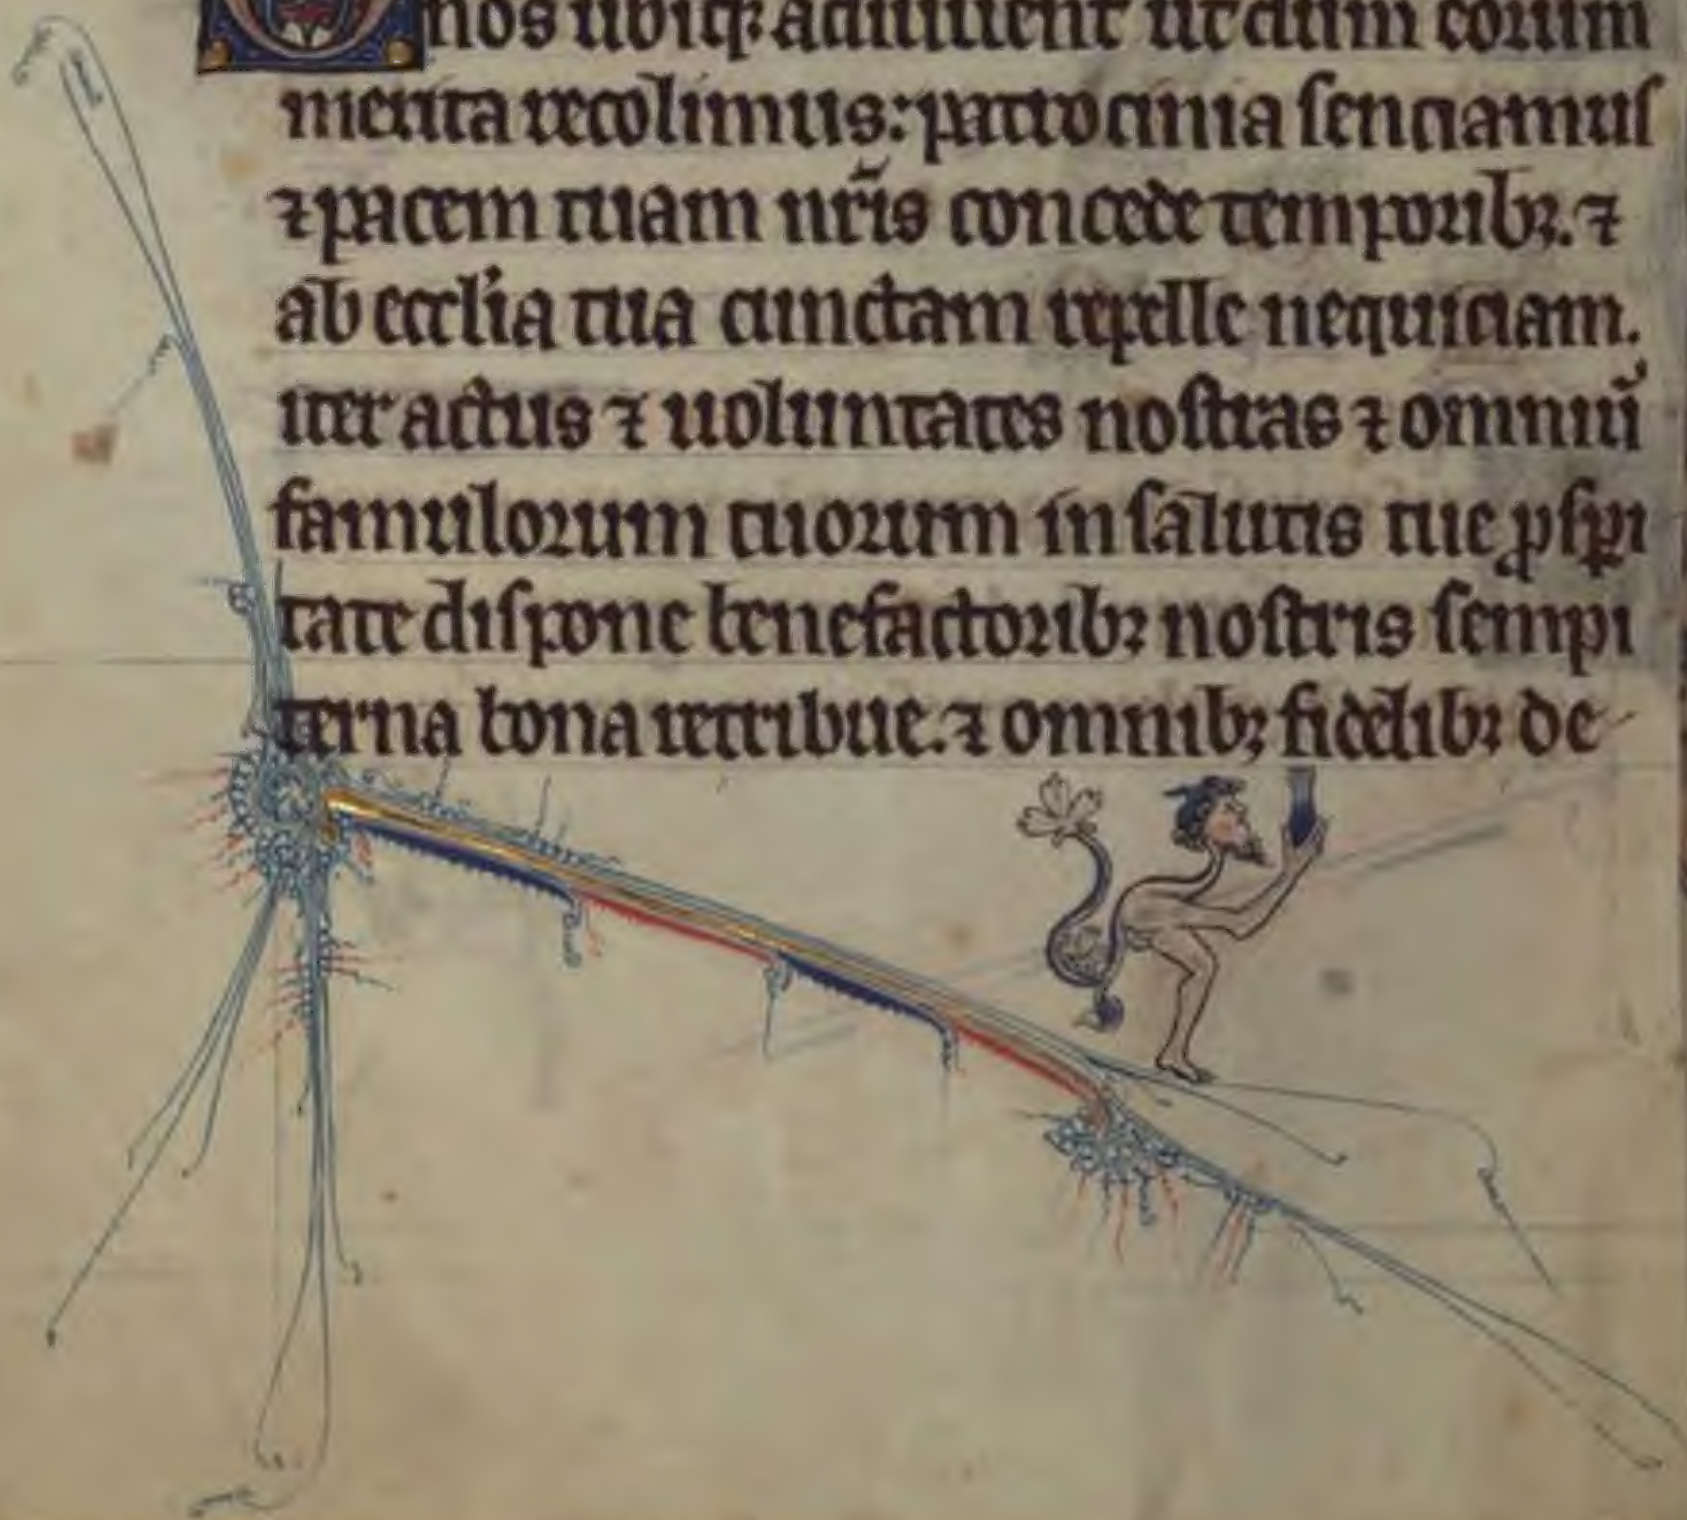 nos ubiq; adiuuent ut dum eorum
merita recolimus: patrocinia senciamus
⁊ pacem tuam nr̃is concede temporibꝫ. ⁊
ab ecclīa tua cunctam repelle nequiciam.
iter actus ⁊ uoluntates nostras ⁊ omniū
famulorum tuorum in salutis tue ꝓsꝑi
tate dispone benefactoribꝫ nostris sempi
terna bona retribue. ⁊ omnibꝫ fidelibꝫ de